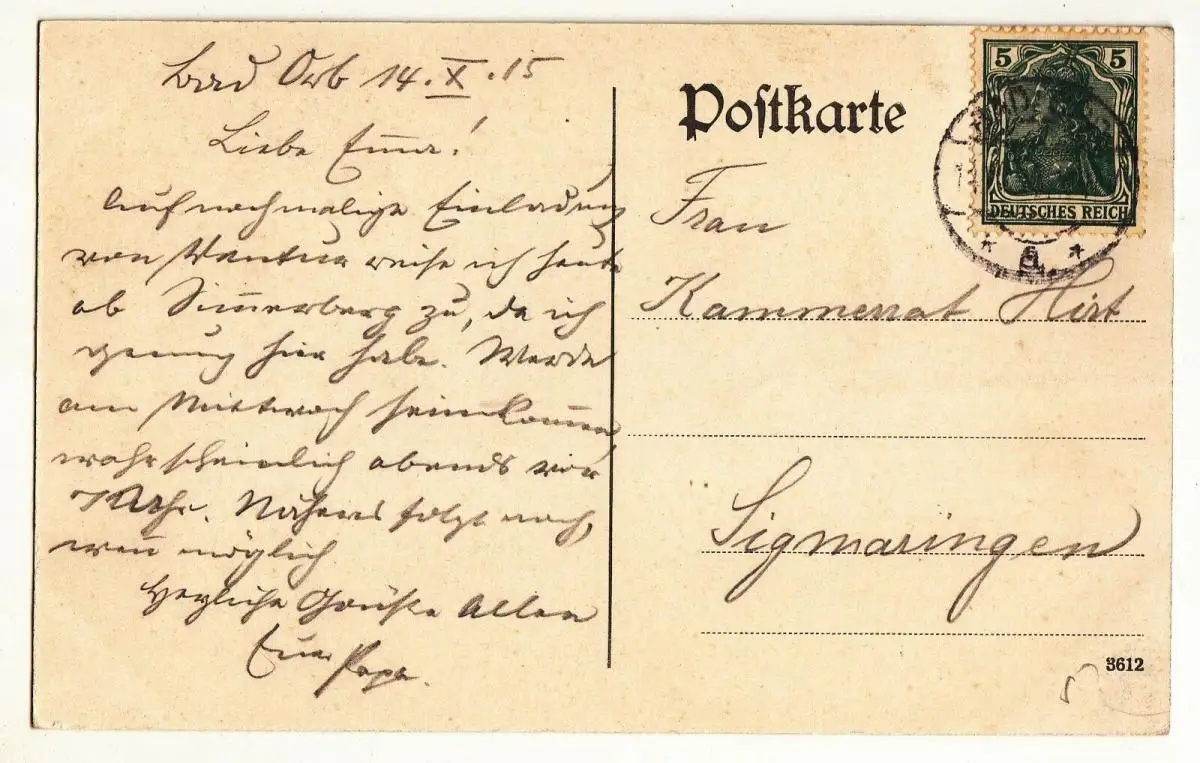 Bad Orb 14.X.15
Liebe Emma!
Auf nochmalige Einladung
von reise ich heute
ab zu, da ich
genug hier habe. Werde
am Mittwoch heimkommen,
wahrscheinlich abends vor
7 Uhr. Näheres folgt noch,
wenn möglich
Herzliche Grüße Allen
Euer Papa.
Postkarte
5 5
DEUTSCHES REICH
* a. *
Frau
Kammerrat Hirt
Sigmaringen
3612
5